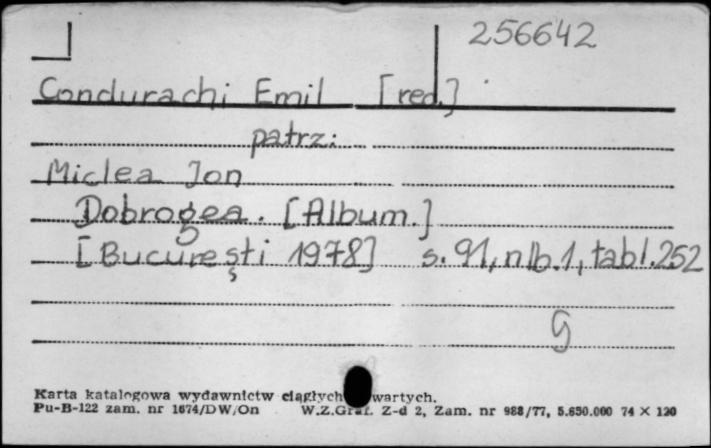 256642
Condurachi Emil [red.]
patrz:
Miclea Jon
Dobrogea. [Album.]
[București 1978] s. 91, nlb. 1, tabl. 252
G
Karta katalogowa wydawnictw ciągłych wartych.
Pu-B-122 zam. nr 1674/DW/On W.Z.Graf. Z-d 2, Zam. nr 988/77, 5.650.000 74 × 120